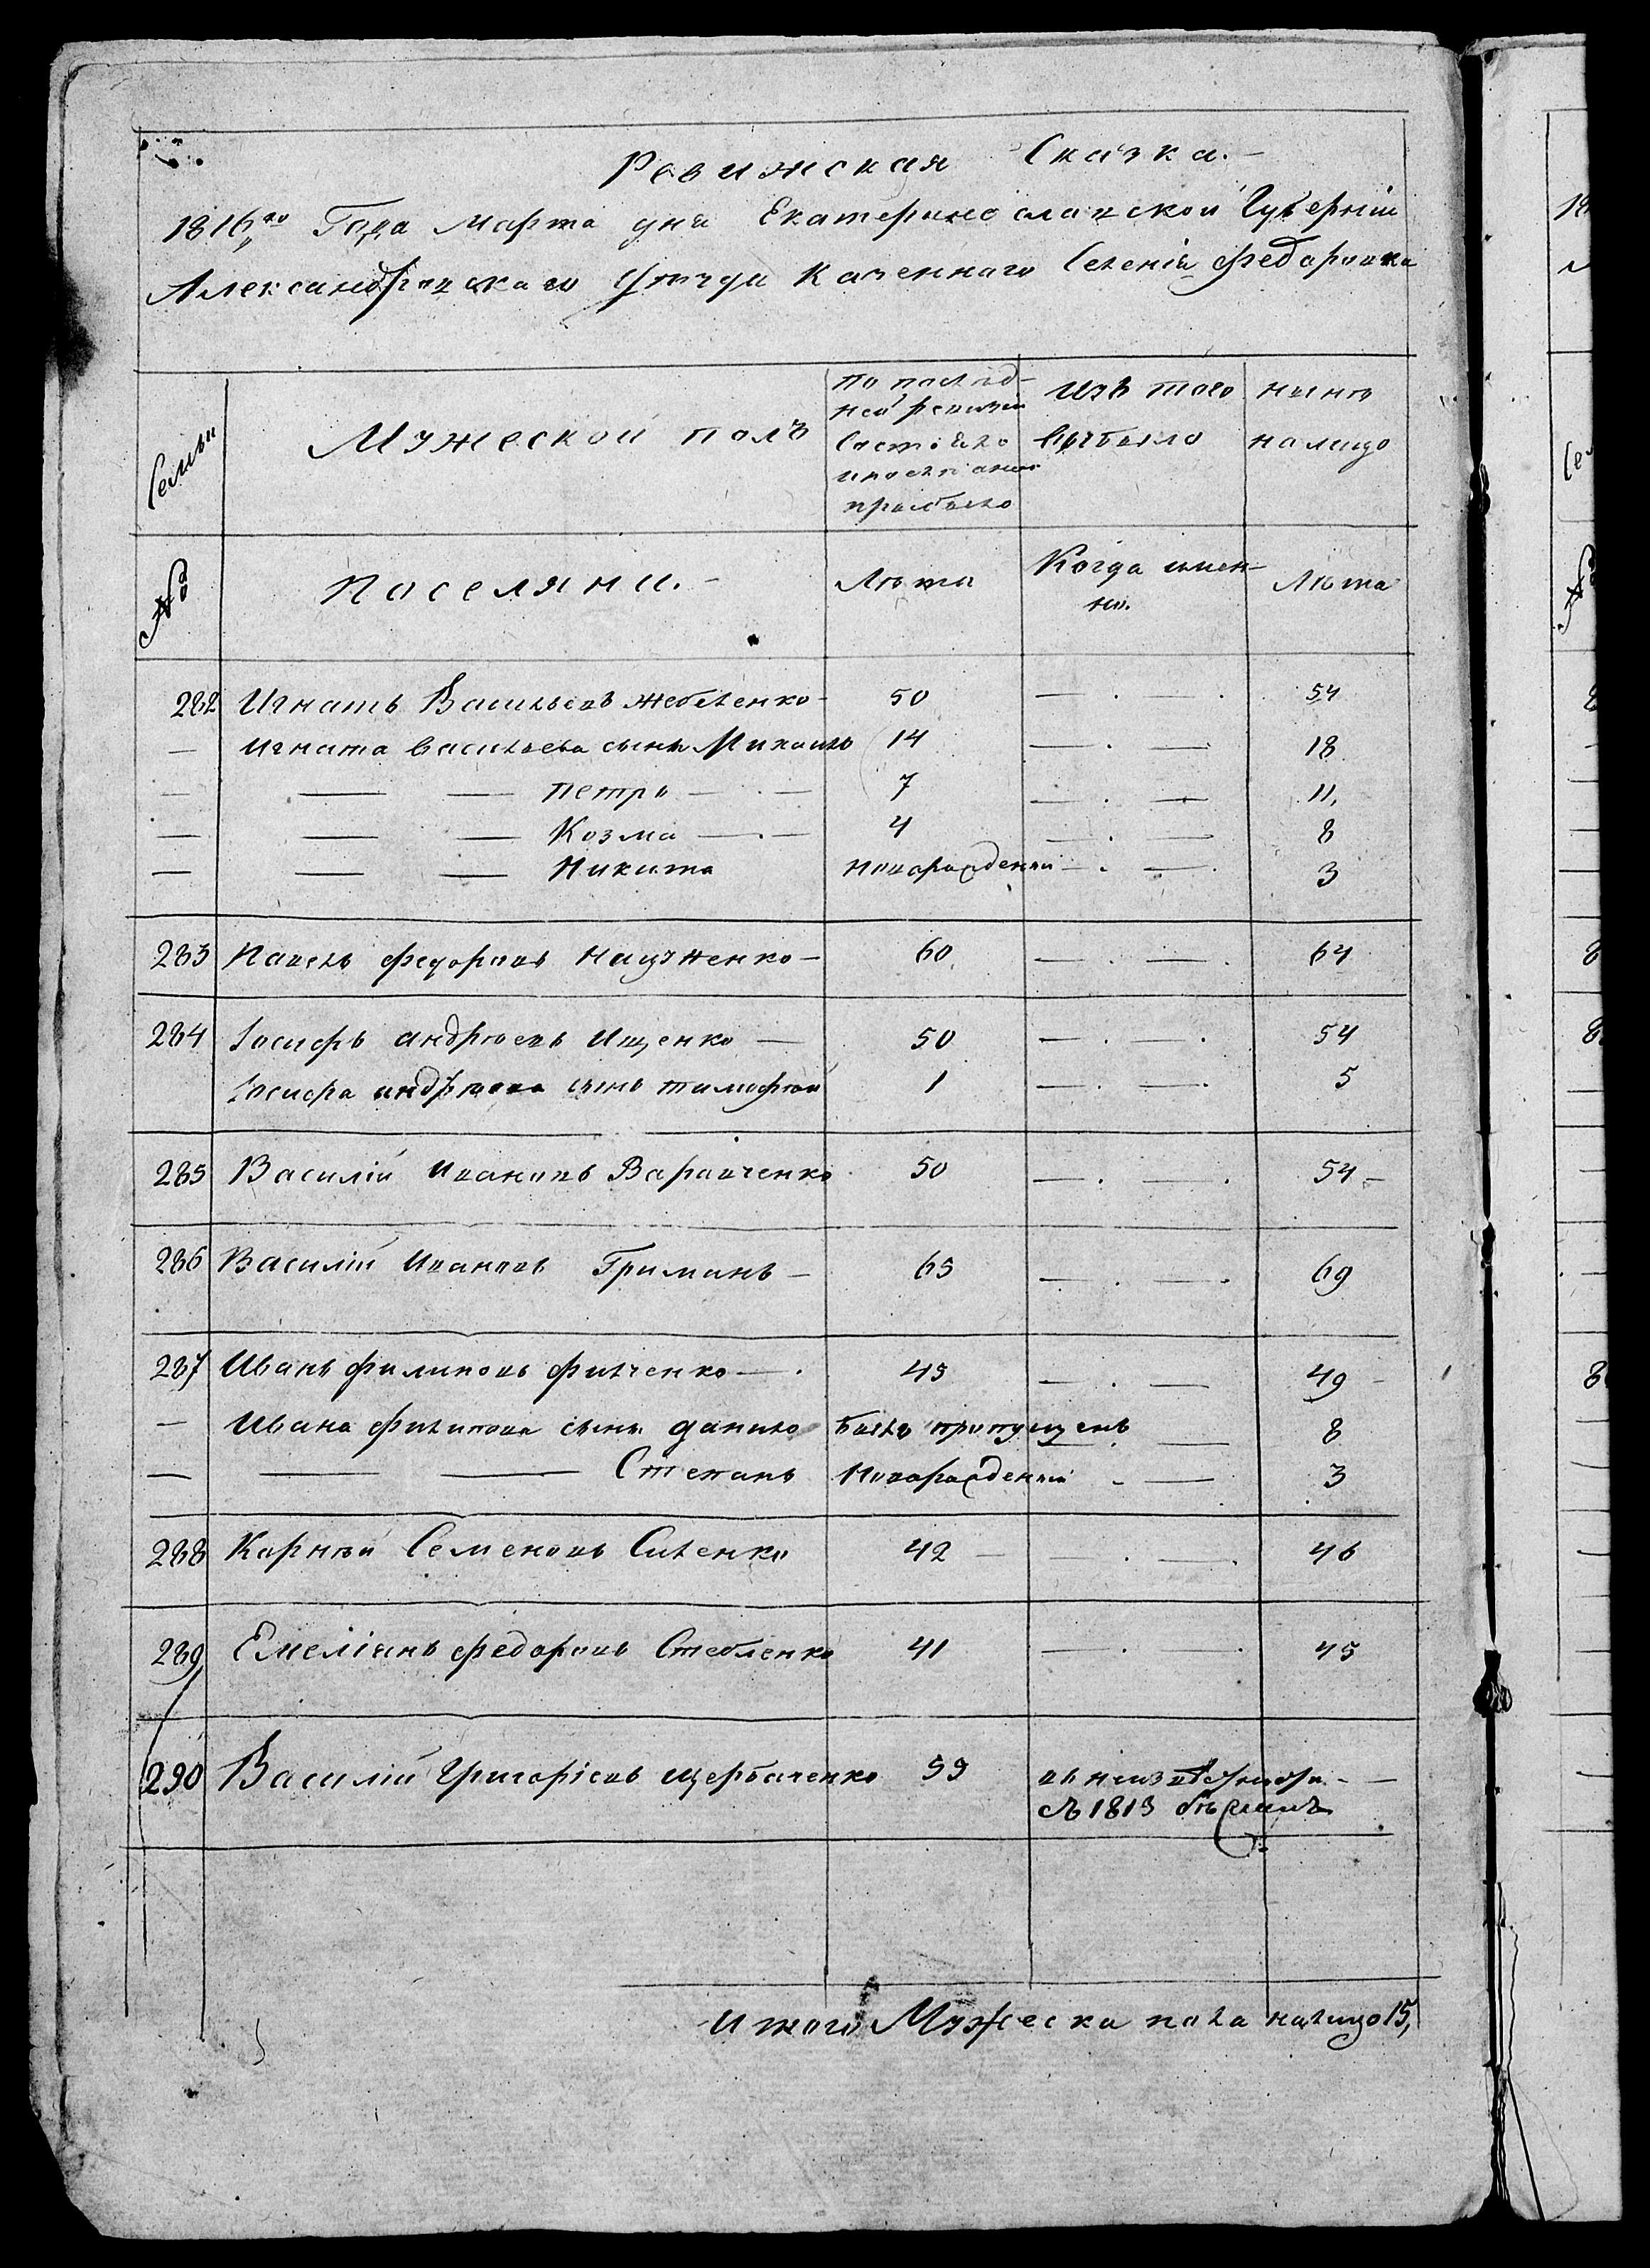 Ревижская Сказка.
1816го Года Марта дня Екатеринославской Губернiи
Александровскаго Уезда Казеннаго Селенiя Федоровка
Семьи
Мужеской полъ
по послед-
ней ревизiи
состояло
и после оной
прибыло
Изъ того
выбыло
ныне
на лицо
№
Поселяни.
Лета
Когда имен-
но.
Лета
282 Игнатъ Васильевъ Жебленко 50 54
Игната Васильева сынъ Михаилъ 14 18
Петръ 7 11,
Козма 4 8
Никита новорожденный 3
283 Павелъ Федоровъ 60 64
284 Iосифъ Андреевъ Ищенко 50 54
Iосифа Андреева сынъ Тимофей 1 5
285 Василiй Ивановъ Варавченко 50 54
286 Василiй Ивановъ Гриманъ 65 69
287 Иванъ Филиповъ Филченко 45 49
Ивана Филипова сынъ Данило былъ пропущенъ 8
Степанъ Новорожденный 3
288 Корней Семеновъ Силенко 42 46
289 Емелiянъ Федоровъ Стебленко 41 45
290 Василiй Григорiевъ Щербаченко 59
съ 1813
Итого Мужеска пола налицо 15,